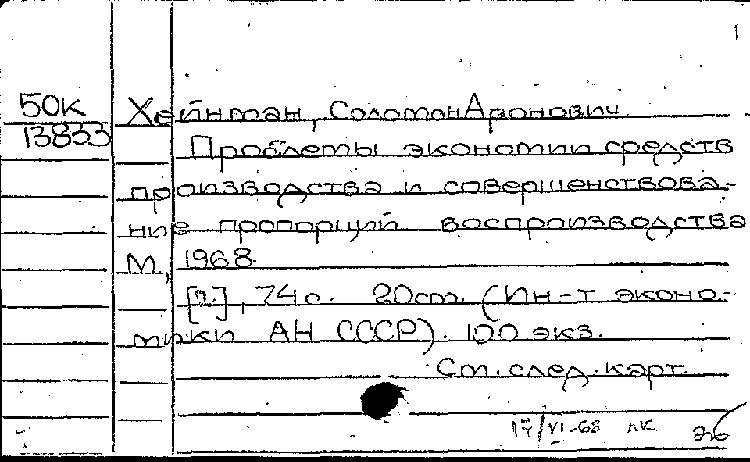 50К Хейнман, Соломон Аронович
13833 Проблемы экономии средств
производства и совершенствова-
ние пропорций воспроизводства
М, 1968.
[2.], 74с. 20ст. (Ин-т эконо-
мики АН СССР). 100 экз.
См. след. карт.
17/VI-68 лк